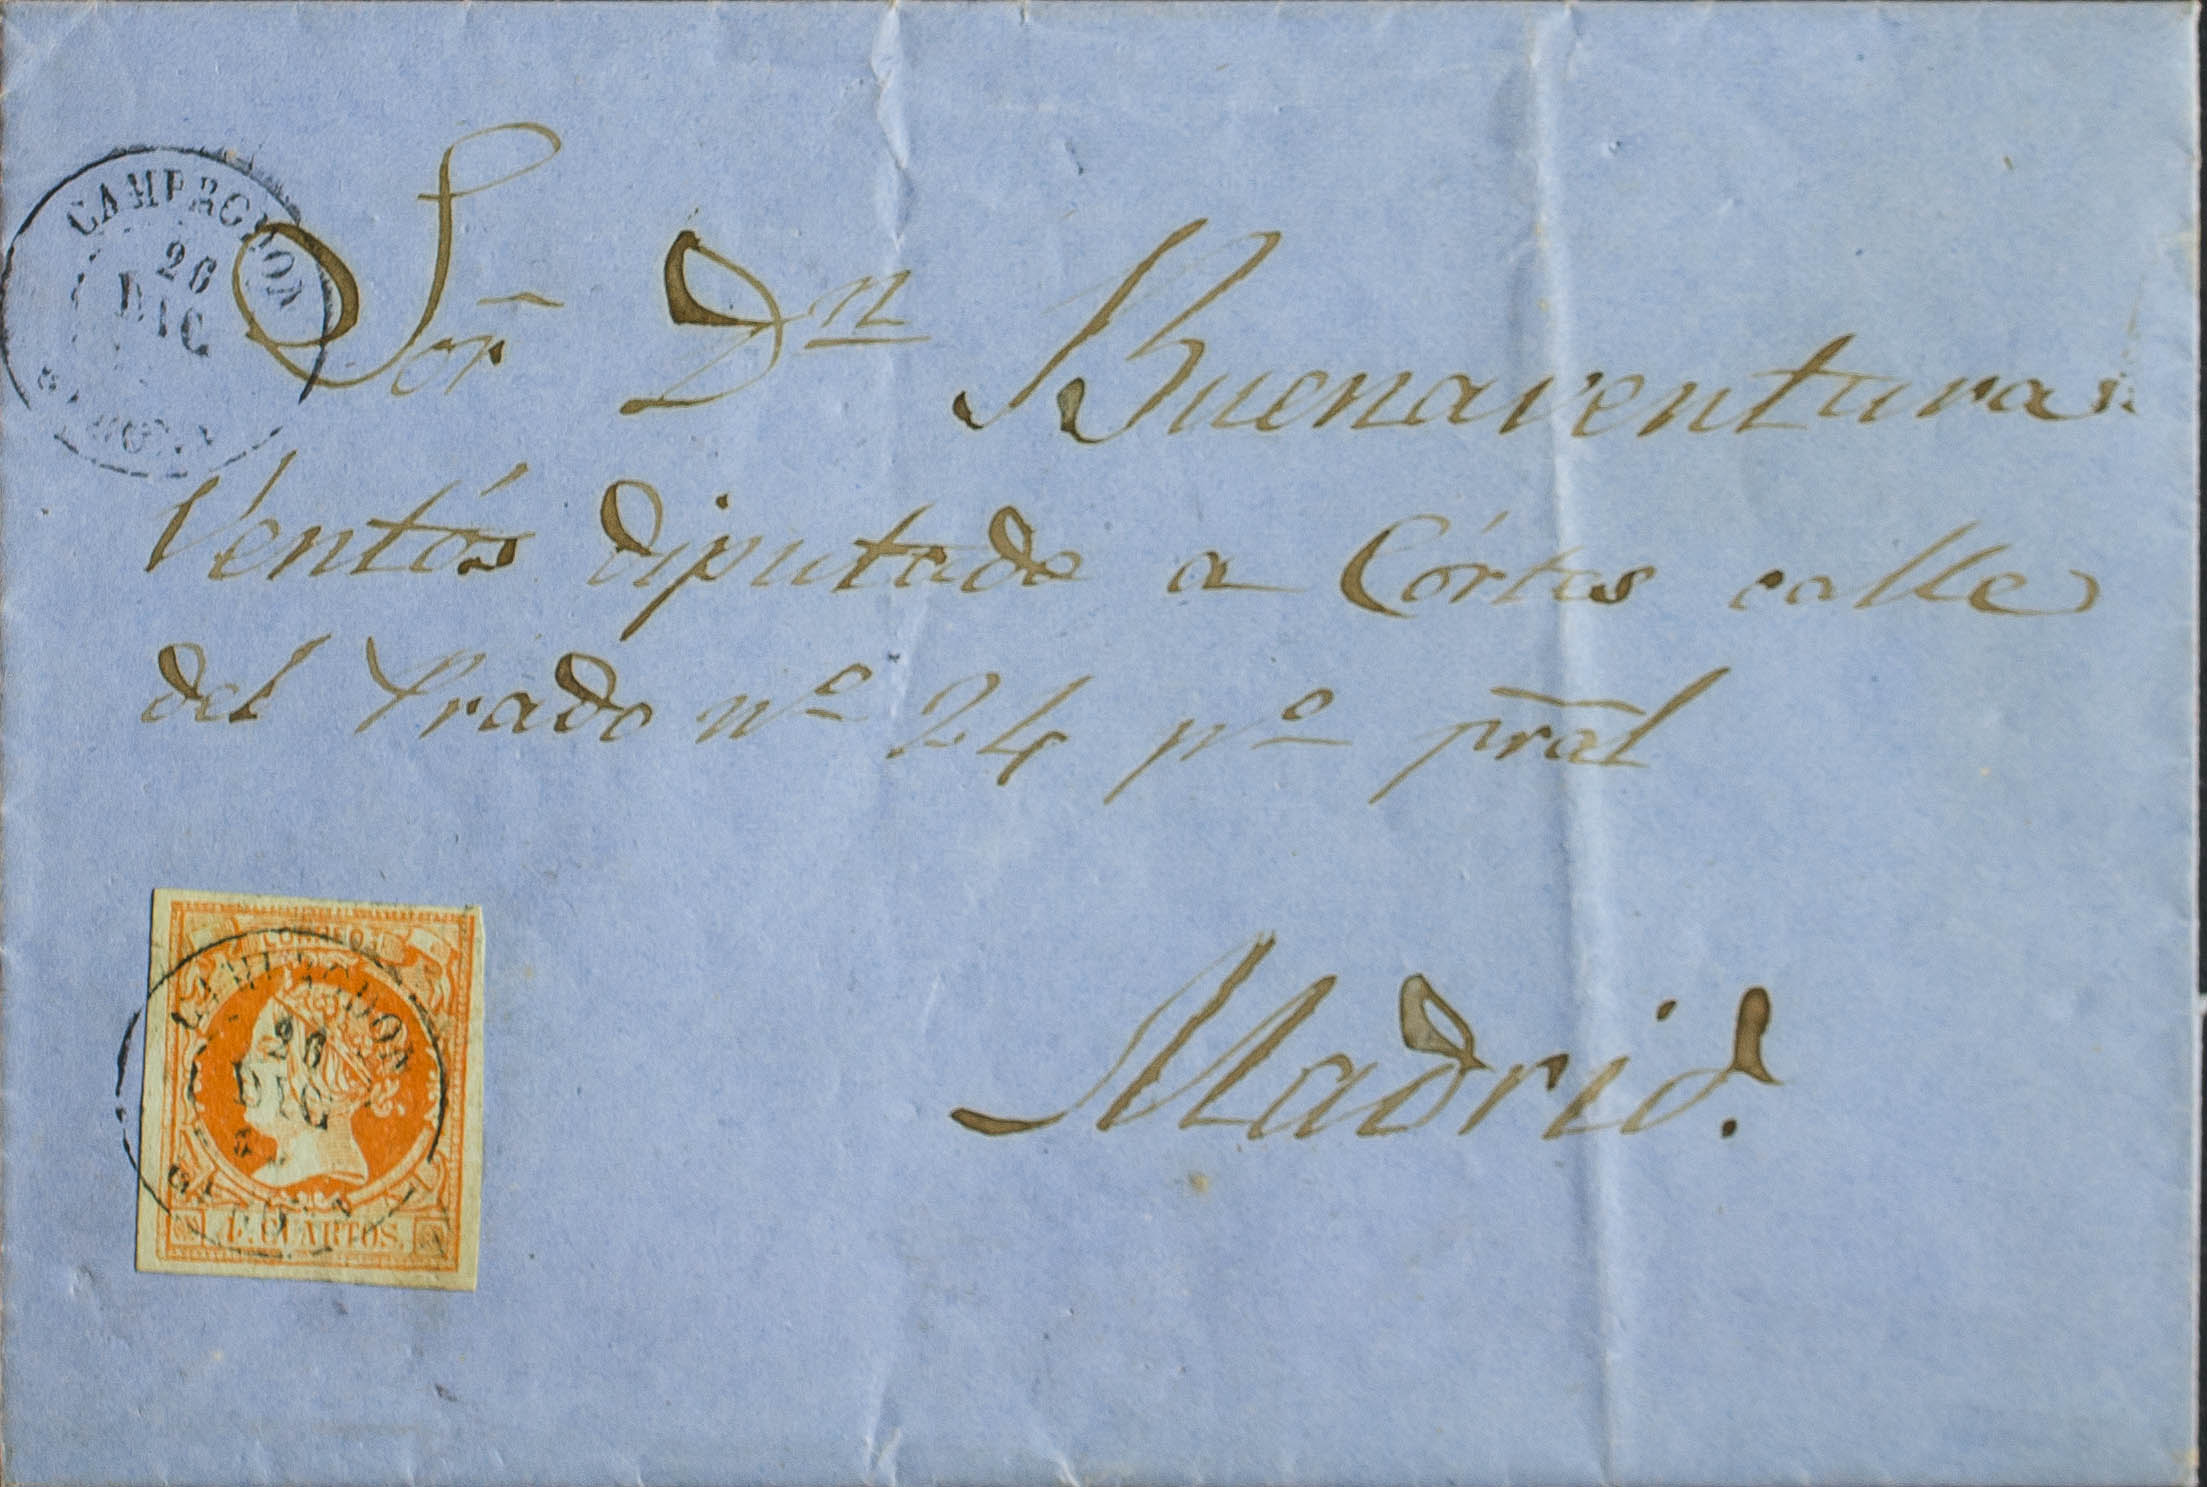 CAMPRODON
26
DIC
GERONA
Sor. Dn Buenaventura
Ventós diputado a Córtes calle
del Prado nº 24 pº pral
Madrid.
CORREOS
CAMPRODON
26
DIC
4 CUARTOS.